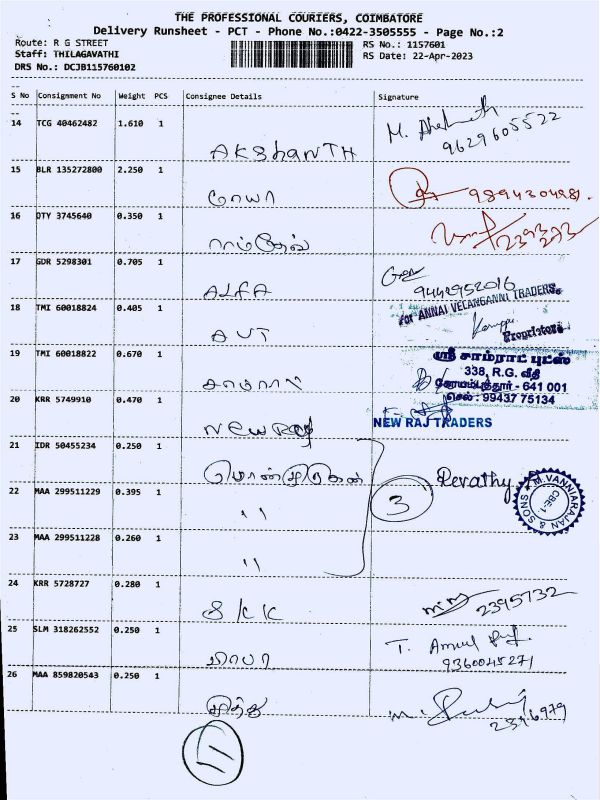 THE PROFESSIONAL COURIERS, COIMBATORE
Delivery Runsheet - PCT - Phone No.:0422-3505555 - Page No.:2
Route: R G STREET
RS No.: 1157601
Staff: THILAGAVATHI
RS Date: 22-Apr-2023
DRS No.: DCJB115760102
S No Consignment No Weight PCS Consignee Details Signature
14 TCG 40462482 1.610 1
9629605522
AKSHANTH
15 BLR 135272800 2.250 1
16 QTY 3745640 0.350 1
239373
ராம்தேவ்
17 GDR 5298301 0.705 1
9442952016
ALFA
for ANNAI VELANGANNI TRADERS,
18 TMI 60018824 0.405 1
Proprietors
AVT
19 TMI 60018822 0.670 1
ஸ்ரீ சாம்ராட் பூட்ஸ்
338, R.G. வீதி
கோயம்புத்தூர் - 641 001
செல் : 99437 75134
20 KRR 5749910 0.470 1
NEW RAJ TRADERS
NEW RAJ
21 IDR 50455234 0.250 1
3
Revathy
M.VANNIARAJAN & SONS
CBE-1.
22 MAA 299511229 0.395 1
"
23 MAA 299511228 0.260 1
"
24 KRR 5728727 0.280 1
2395732
SKK
25 SLM 318262552 0.250 1
9360045271
26 MAA 859820543 0.250 1
2396979
முத்து